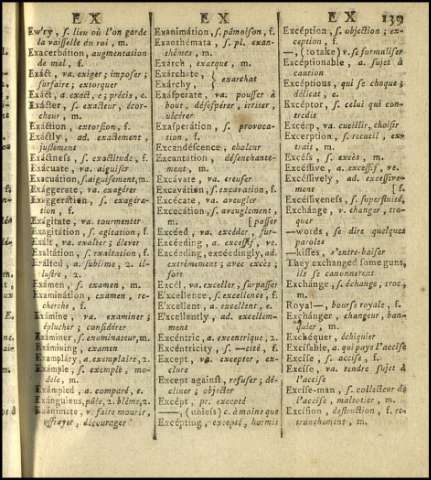 E X
E X
E X
139
Ew'ry, ſ. lieu où l'on garde
la vaiſſelle du roi, m.
Exacerbátion, augmentation
de mal, f.
Exáct, va. exiger; impoſer;
ſurfaire; extorquer
Exáct, a. exact, e; précis, e.
Exácter, ſ. exacteur, écor-
cheur, m.
Exáction, extorſion, f.
Exáctly, ad. exactement,
juſtement
Exáctneſs, ſ. exactitude, f.
Exácuate, va. aiguiſer
Exággerate, va. exagérer
Exaggerátion, ſ. exagéra-
tion, f.
Exágitate, va. tourmenter
Exagitátion, ſ. agitation, f.
Exált, va. exalter; élever
Exaltátion, ſ. exaltation, f.
Exálted, a. ſublime, 2. il-
luſtre, 2.
Exámen, ſ. examen, m.
Examinátion, examen, re-
cherche, f.
Exámine, va. examiner;
éplucher; conſidérer
Exáminer, ſ. examinateur, m.
Exámining, examen
Exámplary, a. exemplaire, 2.
Exámple, ſ. exemple, mo-
dèle, m.
Exámpled, a. comparé, e.
Exánguious, pâle, 2. blême, 2.
Exánimate, v. faire mourir,
effrayer, décourager
Exanimátion, ſ. pâmoiſon, f.
Exanthémata, ſ. pl. exan-
thèmes, m.
Exárch, exarque, m.
Exárchate,
Exárchy,
exarchat
Exáſperate, va. pouſſer à
bout, déſeſpérer, irriter,
ulcérer
Exaſperátion, ſ. provoca-
tion, f.
Excandéſcence, chaleur
Excantátion, déſenchante-
ment, m.
Excávate, va. creuſer
Excavátion, ſ. excavation, f.
Excécate, va. aveugler
Excecátion, ſ. aveuglement,
m. [paſſer
Excéed, va. excéder, ſur-
Excéeding, a. exceſſif, ve.
Excéeding, exceedingly, ad.
extrêmement; avec excès;
fort
Excél, va. exceller, ſurpaſſer
E'xcellence, ſ. excellence, f.
E'xcellent, a. excellent, e.
E'xcellently, ad. excellem-
ment
Excéntric, a. excentrique, 2.
Excentrícity, ſ. —cité, f.
Excépt, va. excepter, ex-
clure
Excépt againſt, refuſer; dé-
cliner; objecter
Excépt, pr. excepté
—, (unleſs) c. à moins que
Excépting, excepté, hormis
Excéption, ſ. objection; ex-
ception, f.
—, (to take) v. ſe formaliſer
Excéptionable, a. ſujet à
caution
Excéptious, qui ſe choque;
délicat, e.
Excéptor, ſ. celui qui con-
tredit
Excérp, va. cueillir, choiſir
Excérption, ſ. recueil, ex-
trait, m.
Excéſs, ſ. excès, m.
Excéſſive, a. exceſſif, ve.
Excéſſively, ad. exceſſive-
ment [f.
Excéſſiveneſs, ſ. ſuperfluité,
Exchánge, v. changer, tro-
quer
—words, ſe dire quelques
paroles
—kiſſes, s'entre-baiſer
They exchanged ſome guns,
ils ſe canonnèrent
Exchánge, ſ. échange, troc,
m.
Royal—, bourſe royale, f.
Exchánger, changeur, ban-
quier, m.
Exchéquer, échiquier
Exciſable, a. qui paye l'acciſe
Excíſe, ſ. acciſe, f.
Excíſe, va. rendre ſujet à
l'acciſe
Excíſe-man, ſ. collecteur de
l'acciſe, maltotier, m.
Excíſion, deſtruction, f. re-
tranchement, m.